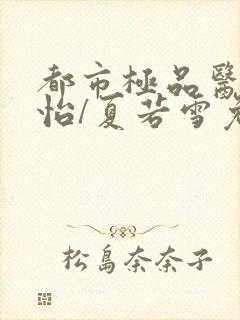 都市極品醫
怡/夏若雪
松島奈奈子